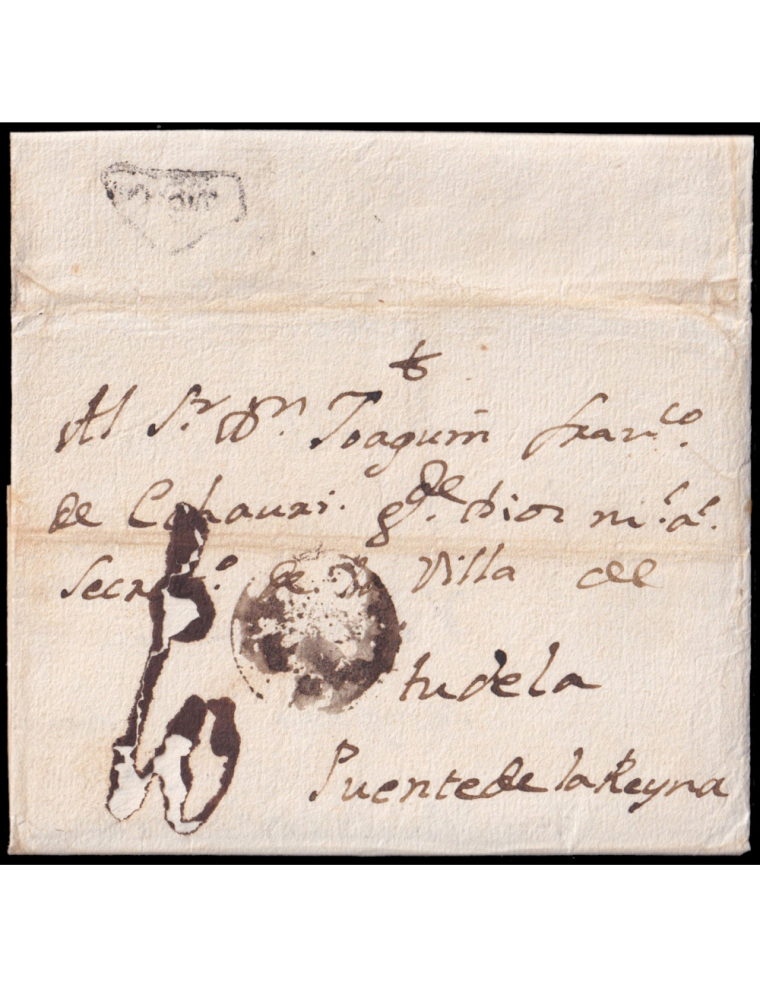 Al S.r D.n Joaquin Fran.co
de g.de Dios m.s a.s
Secret.o de la Villa de
tudela
Puente de la Reyna